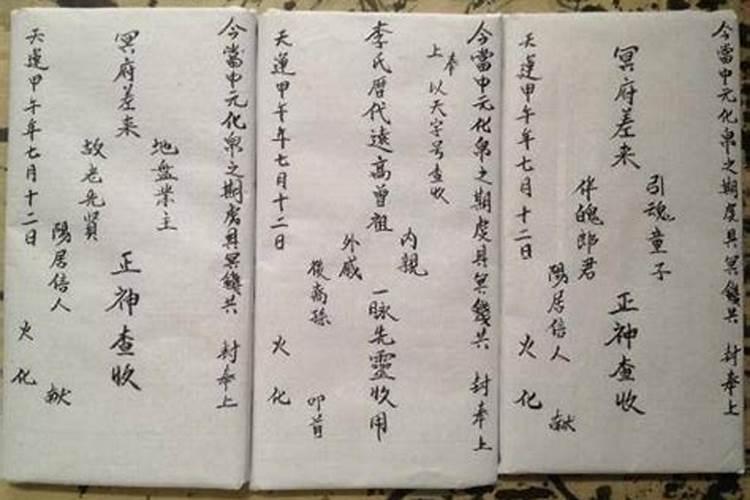 今當中元化帛之期虔具冥錢共 封奉上
引魂童子
冥府差来 正神查收
伴魄郎君
陽居信人 献
天運甲午年七月十二日 火化
今當中元化帛之期虔具冥錢共 封奉上
奉上 以天字号查收
内親
李氏暦代遠高曾祖 一脉先靈收用
外戚
後裔孫 叩首
天運甲午年七月十二日 火化
今當中元化帛之期虔具冥錢共 封奉上
地盤業主
冥府差来 正神查收
故老先賢
陽居信人 献
天運甲午年七月十二日 火化